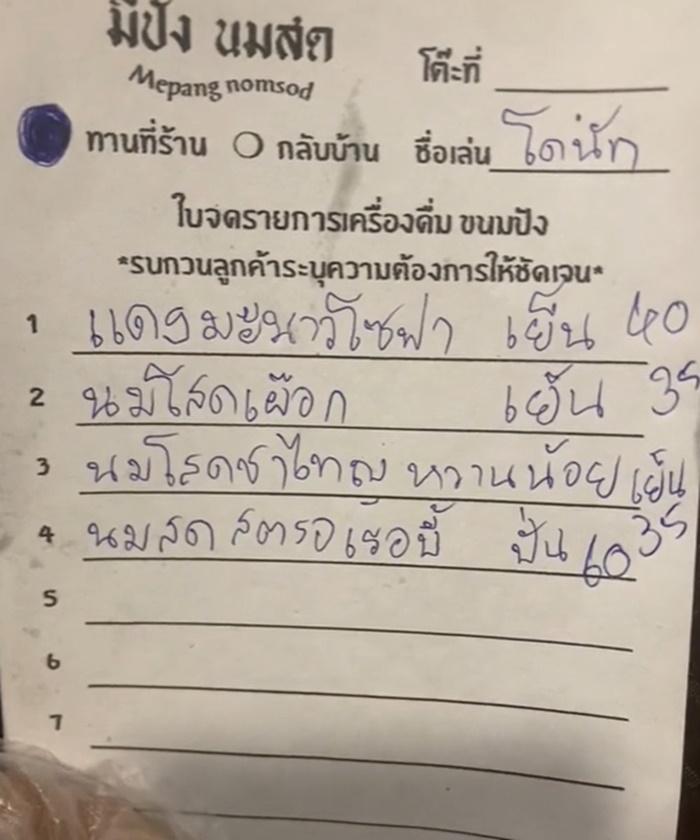 มีปัง นมสด
Mepang nomsod
โต๊ะที่
ทานที่ร้าน กลับบ้าน ชื่อเล่น โดนัท
ใบจดรายการเครื่องดื่ม ขนมปัง
*รบกวนลูกค้าระบุความต้องการให้ชัดเจน*
1 แดงมะนาวโซฟา เย็น 40
2 นมโสดเผือก เย็น 35
3 นมโสดชาไทญ หวานน้อย เย็น 35
4 นมสด สตรอเร้อบี้ ปั่น 60
5
6
7